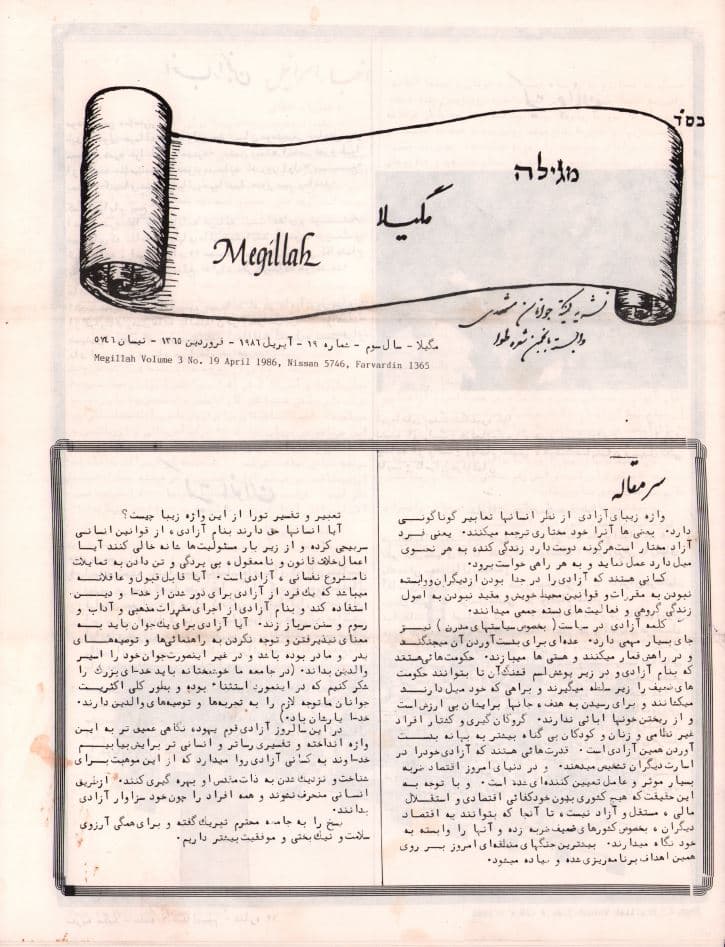 בס״ד
מגילה
مگیلا
Megillah
نشریه کمیته جوانان مشهدی
وابسته بانجمن شوره طوا
مگیلا - سال سوم - شماره ۱۹ - آپریل ۱۹۸۶ - فروردین ۱۳۶۵ - نیسان ۵۷۴۶
Megillah Volume 3 No. 19 April 1986, Nissan 5746, Farvardin 1365
سرمقاله
واژه زیبای آزادی از نظر انسانها تعابیر گوناگونی
دارد. یعنی ها آنرا خود مختاری ترجمه میکنند. یعنی فرد
آزاد مختار است هرگونه دوست دارد زندگی کنده به هر نحوی
میل دارد عمل نماید و به هر راهی خواست برود.
کسانی هستند که آزادی را در جدا بودن از دیگران و وابسته
نبودن به مقررات و قوانین محیط خویش و مقید نبودن به اصول
زندگی گروهی و فعالیت‌های دسته جمعی میدانند.
کلمه آزادی در سیاست (بخصوص سیاستهای مدرن) نیز
جای بسیار مهمی دارد. عده‌ای برای بدست آوردن آن میجنگند
و در راهش قمار میکنند و هستی ها میبازند. حکومت‌هائی هستند
که بنام آزادی و در زیر پوشش اسم قشنگ آن تا بتوانند حکومت
های ضعیف را زیر سلطه میگیرند و براهی که خود میل دارند
میکشانند و برای رسیدن به هدف، جانها برایشان بی ارزش است
و از ریختن خونها ابائی ندارند. گروگان گیری و کشتار افراد
غیر نظامی و زنان و کودکان بی گناه بیشتر به بهانه بدست
آوردن همین آزادی است. قدرت‌هائی هستند که آزادی خود را در
اسارت دیگران تشخیص میدهند. و در دنیای امروز اقتصاد حربه
بسیار موثر و عامل تعیین کننده‌ای شده است. و با توجه به
این حقیقت که هیچ کشوری بدون خودکفائی اقتصادی و استقلال
مالی، مستقل و آزاد نیست، تا آنجا که بتوانند به اقتصاد
دیگران، بخصوص کشورهای ضعیف ضربه زده و آنها را وابسته به
خود نگاه میدارند. بیشترین جنگهای منطقه‌ای امروز بر روی
همین اهداف برنامه‌ریزی شده و پیاده میشود.
تعبیر و تفسیر تورا از این واژه زیبا چیست؟
آیا انسانها حق دارند بنام آزادی، از قوانین انسانی
سرپیچی کرده و از زیر بار مسئولیت‌ها شانه خالی کنند آیا
اعمال خلاف قانون و نامعقول، بی پردگی و تن دادن به تمایلات
نامشروع نفسانی، آزادی است. آیا قابل قبول و عاقلانه
میباشد که یک فرد از آزادی برای دور شدن از خدا و دین
استفاده کند و بنام آزادی از اجرای مقررات مذهبی و آداب و
رسوم و سنن سرباز زند. آیا آزادی برای یک جوان باید به
معنای نپذیرفتن و توجه نکردن به راهنمائی‌ها و توصیه‌های
پدر و مادر بوده باشد و در غیر اینصورت جوان خود را اسیر
والدین بداند. (در جامعه ما خوشبختانه باید خدای بزرگ را
شکر کنیم که در اینمورد استثنا، بوده و بطور کلی اکثریت
جوانان ما توجه لازم را به تجربه‌ها و توصیه‌های والدین دارند.
خدا یارشان باد.)
در این سالروز آزادی قوم یهود، نگاهی عمیق تر به این
واژه انداخته و تفسیری رساتر و انسانی تر برایش بیابیم
خداوند به کسانی آزادی روا میدارد که از این موهبت برای
شناخت و نزدیک شدن به ذات مقدس او بهره گیری کنند. از طریق
انسانی منحرف نشوند و همه افراد را چون خود سزاوار آزادی
بدانند.
پسح را به جامعه محترم تبریک گفته و برای همگی آرزوی
سلامت و نیک بختی و موفقیت بیشتر داریم.